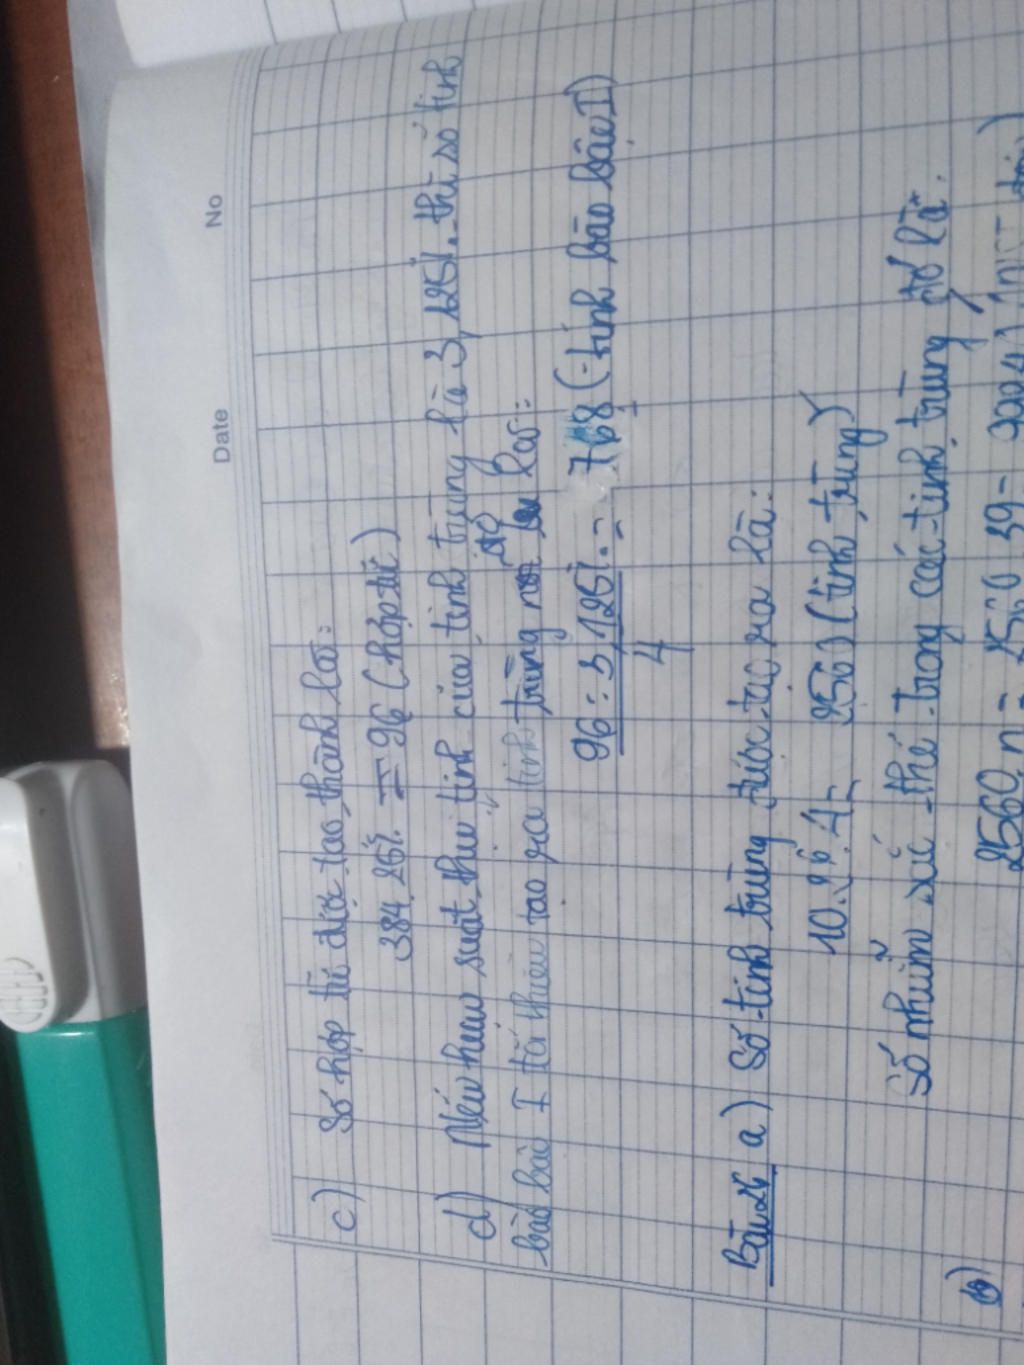 Date No
c) Số hợp tử được tạo thành là:
384.25% = 96 (hợp tử)
d) Nếu hiệu suất thụ tinh của tinh trùng là 3,125% thì số tinh
bào bậc I tối thiểu tạo ra tinh trùng đó là:
96 : 3,125% = 768 (tinh bào bậc I)
4
Bài 24 a) Số tinh trùng được tạo ra là:
10.2⁶.4 = 2560 (tinh trùng)
b) Số nhiễm sắc thể trong các tinh trùng đó là:
2560.n = 2560.39 =